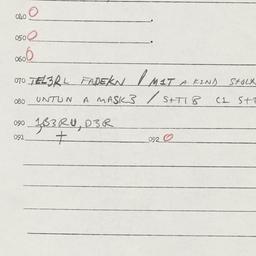 040 O
050 O
060 O
070 JEL3RL FADEKN / M1T A KIND
080 UNTUN A MASK3 / S+TI8 C1
090 1,B3RU, D3R
091 + 092 O